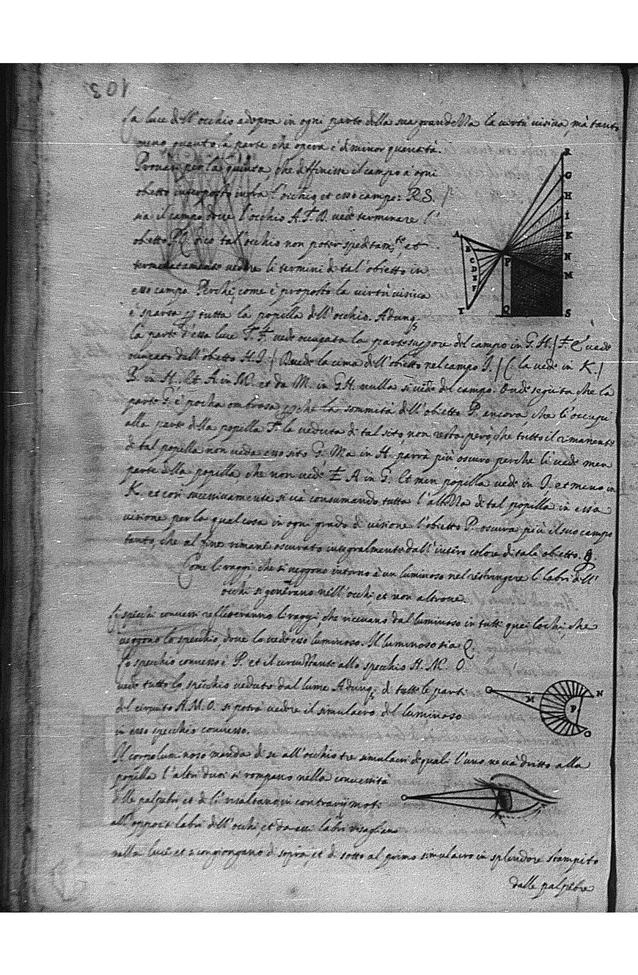 103
La luce dell'occhio adopra in ogni parte della sua grandezza la virtù visiva, ma tanto
meno quanto la parte che opera è di minor quantità.
Provasi per la quinta che diffinisse il campo a ogni
obietto interposto infra l'occhio et esso campo: R.S.
sia il campo dove l'occhio A.F.B. vede terminare l'
obietto P.Q. dico tal'occhio non poter speditamte, et
terminatamente vedere li termini di tal'obietto in
esso campo. Perché come è proposto la virtù visiva
è sparsa per tutta la popilla dell'occhio. Adunq;
la parte d'essa luce F. vede occupata la parte superiore del campo in G.H.
occupato dall'obetto H.I. vede la cima dell'obetto nel campo I. C. la vede in K.
B. in H. et A in M. et da M. in G.H. nulla si vede del campo. Onde seguita che la
parte è pocha ombrosa perché la sommità dell'obietto P. ancora che li occupi
alla parte della popilla F. la veduta di tal sito non resta però che tutto il rimanente
di tal popilla non veda esso sito G. Ma in H. parrà più oscuro perche li vede men
parte della popilla che non vede A in G. et men popilla vede in I. et meno in
K. et così successivamente si va consumando tutta l'altezza di tal popilla in essa
visione per la qual cosa in ogni grado di visione l'obietto P. oscura più il suo campo
tanto, che al fine rimane oscurato integralmente dall'intero colore di tale obietto. Q. P.
Come li raggi che si veggono intorno à un luminoso nel restringere l'labri dell'
occhi si generano nell'occhi, et non altrove.
Li specchi convessi refletteranno li raggi, che ricevano dal luminoso in tutti quei lochi, che
veggono lo specchio, dove la vede esso luminoso. Il luminoso sia Q.
Lo specchio convesso è P. et il circuinstante allo specchio N. M. O.
vede tutto lo specchio veduto dal lume Adunq; di tutte le parti
del circuito N.M.O. si potrà vedere il simulacro del luminoso
in esso specchio convesso.
Il corpo luminoso manda di se all'occhio tre simulacri di quali l'uno ne va dritto alla
popilla l'altri duoi si rompano nella convessità
delle palpebri et di lì risaltano in contrarij moti
all'oppositi labri dell'occhi et da essi labri risaglian
nella luce et s congiongano di sopra et di sotto al primo simulacro in splendore stampito
dalle palpebre
A B C D E F T P Q
R G H I K N M S
M N P O